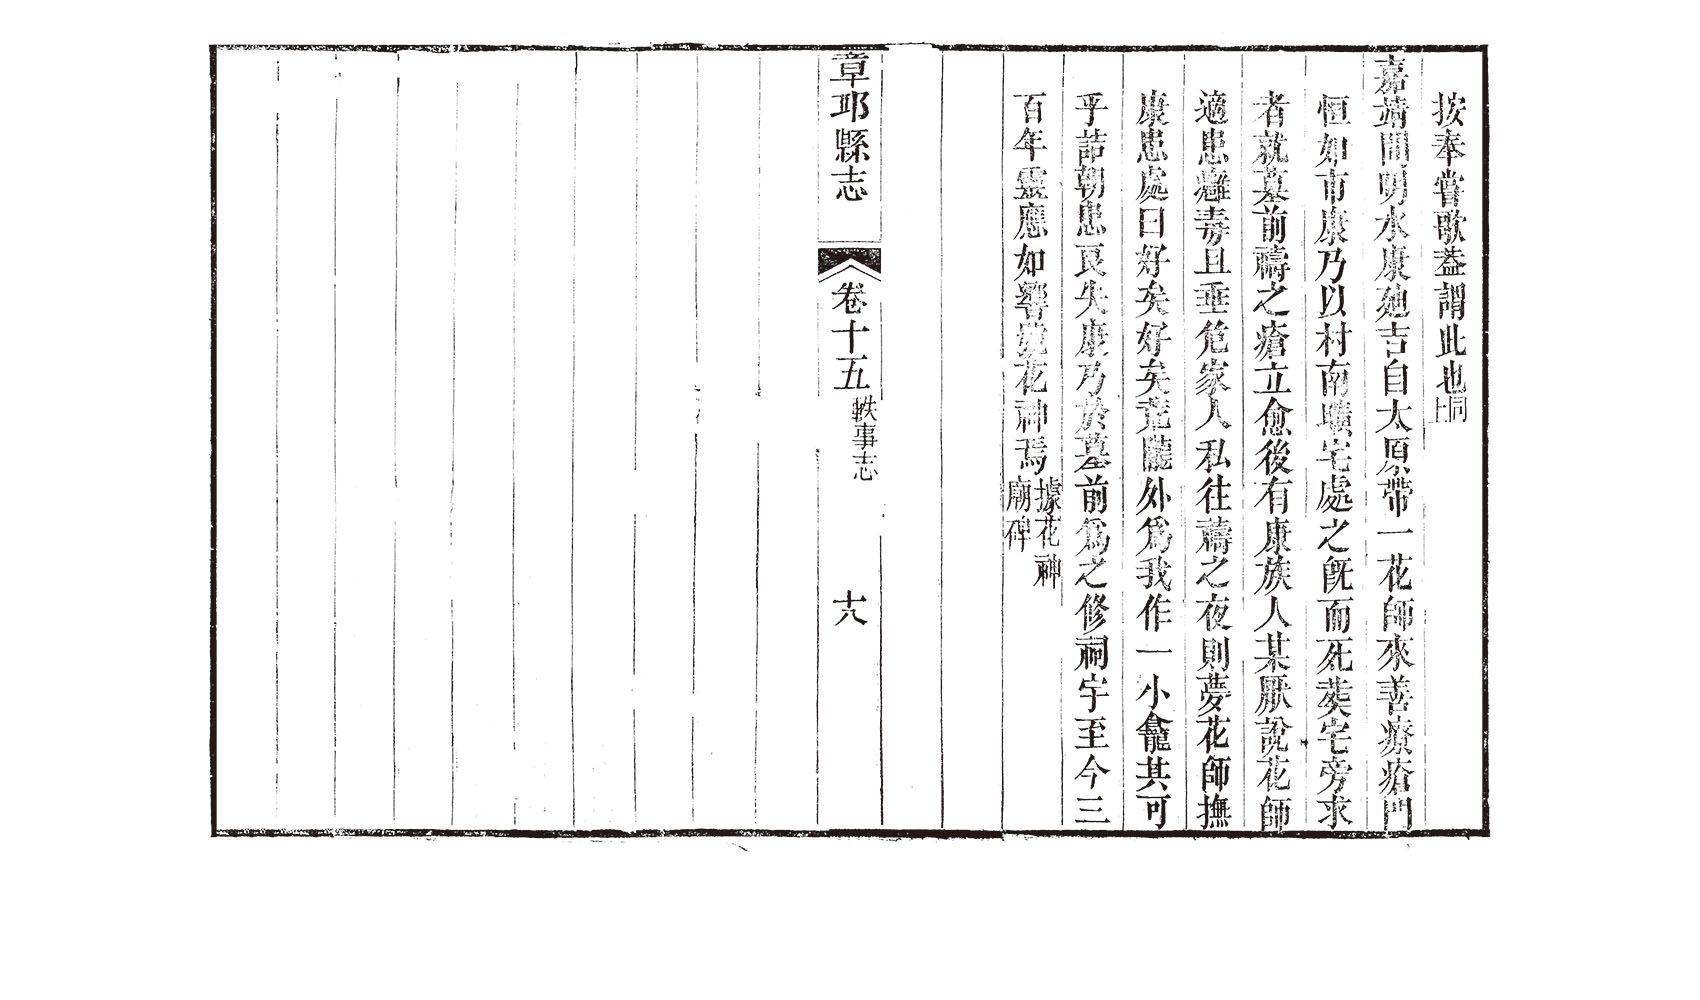 按奉嘗歌葢謂此也同上
嘉靖間明水康廸吉自太原帶一花師來善療瘡門
恒如市康乃以村南壙宅處之旣而死葬宅旁求
者就墓前禱之瘡立愈後有康族人某厭說花師
適患癰毒且垂危家人私往禱之夜則夢花師撫
康患處曰好矣好矣荒隴外爲我作一小龕其可
乎詰朝患良失康乃於墓前爲之修祠宇至今三
百年靈應如響號花神焉據花神廟碑
章邱縣志
卷十五
軼事志
十八